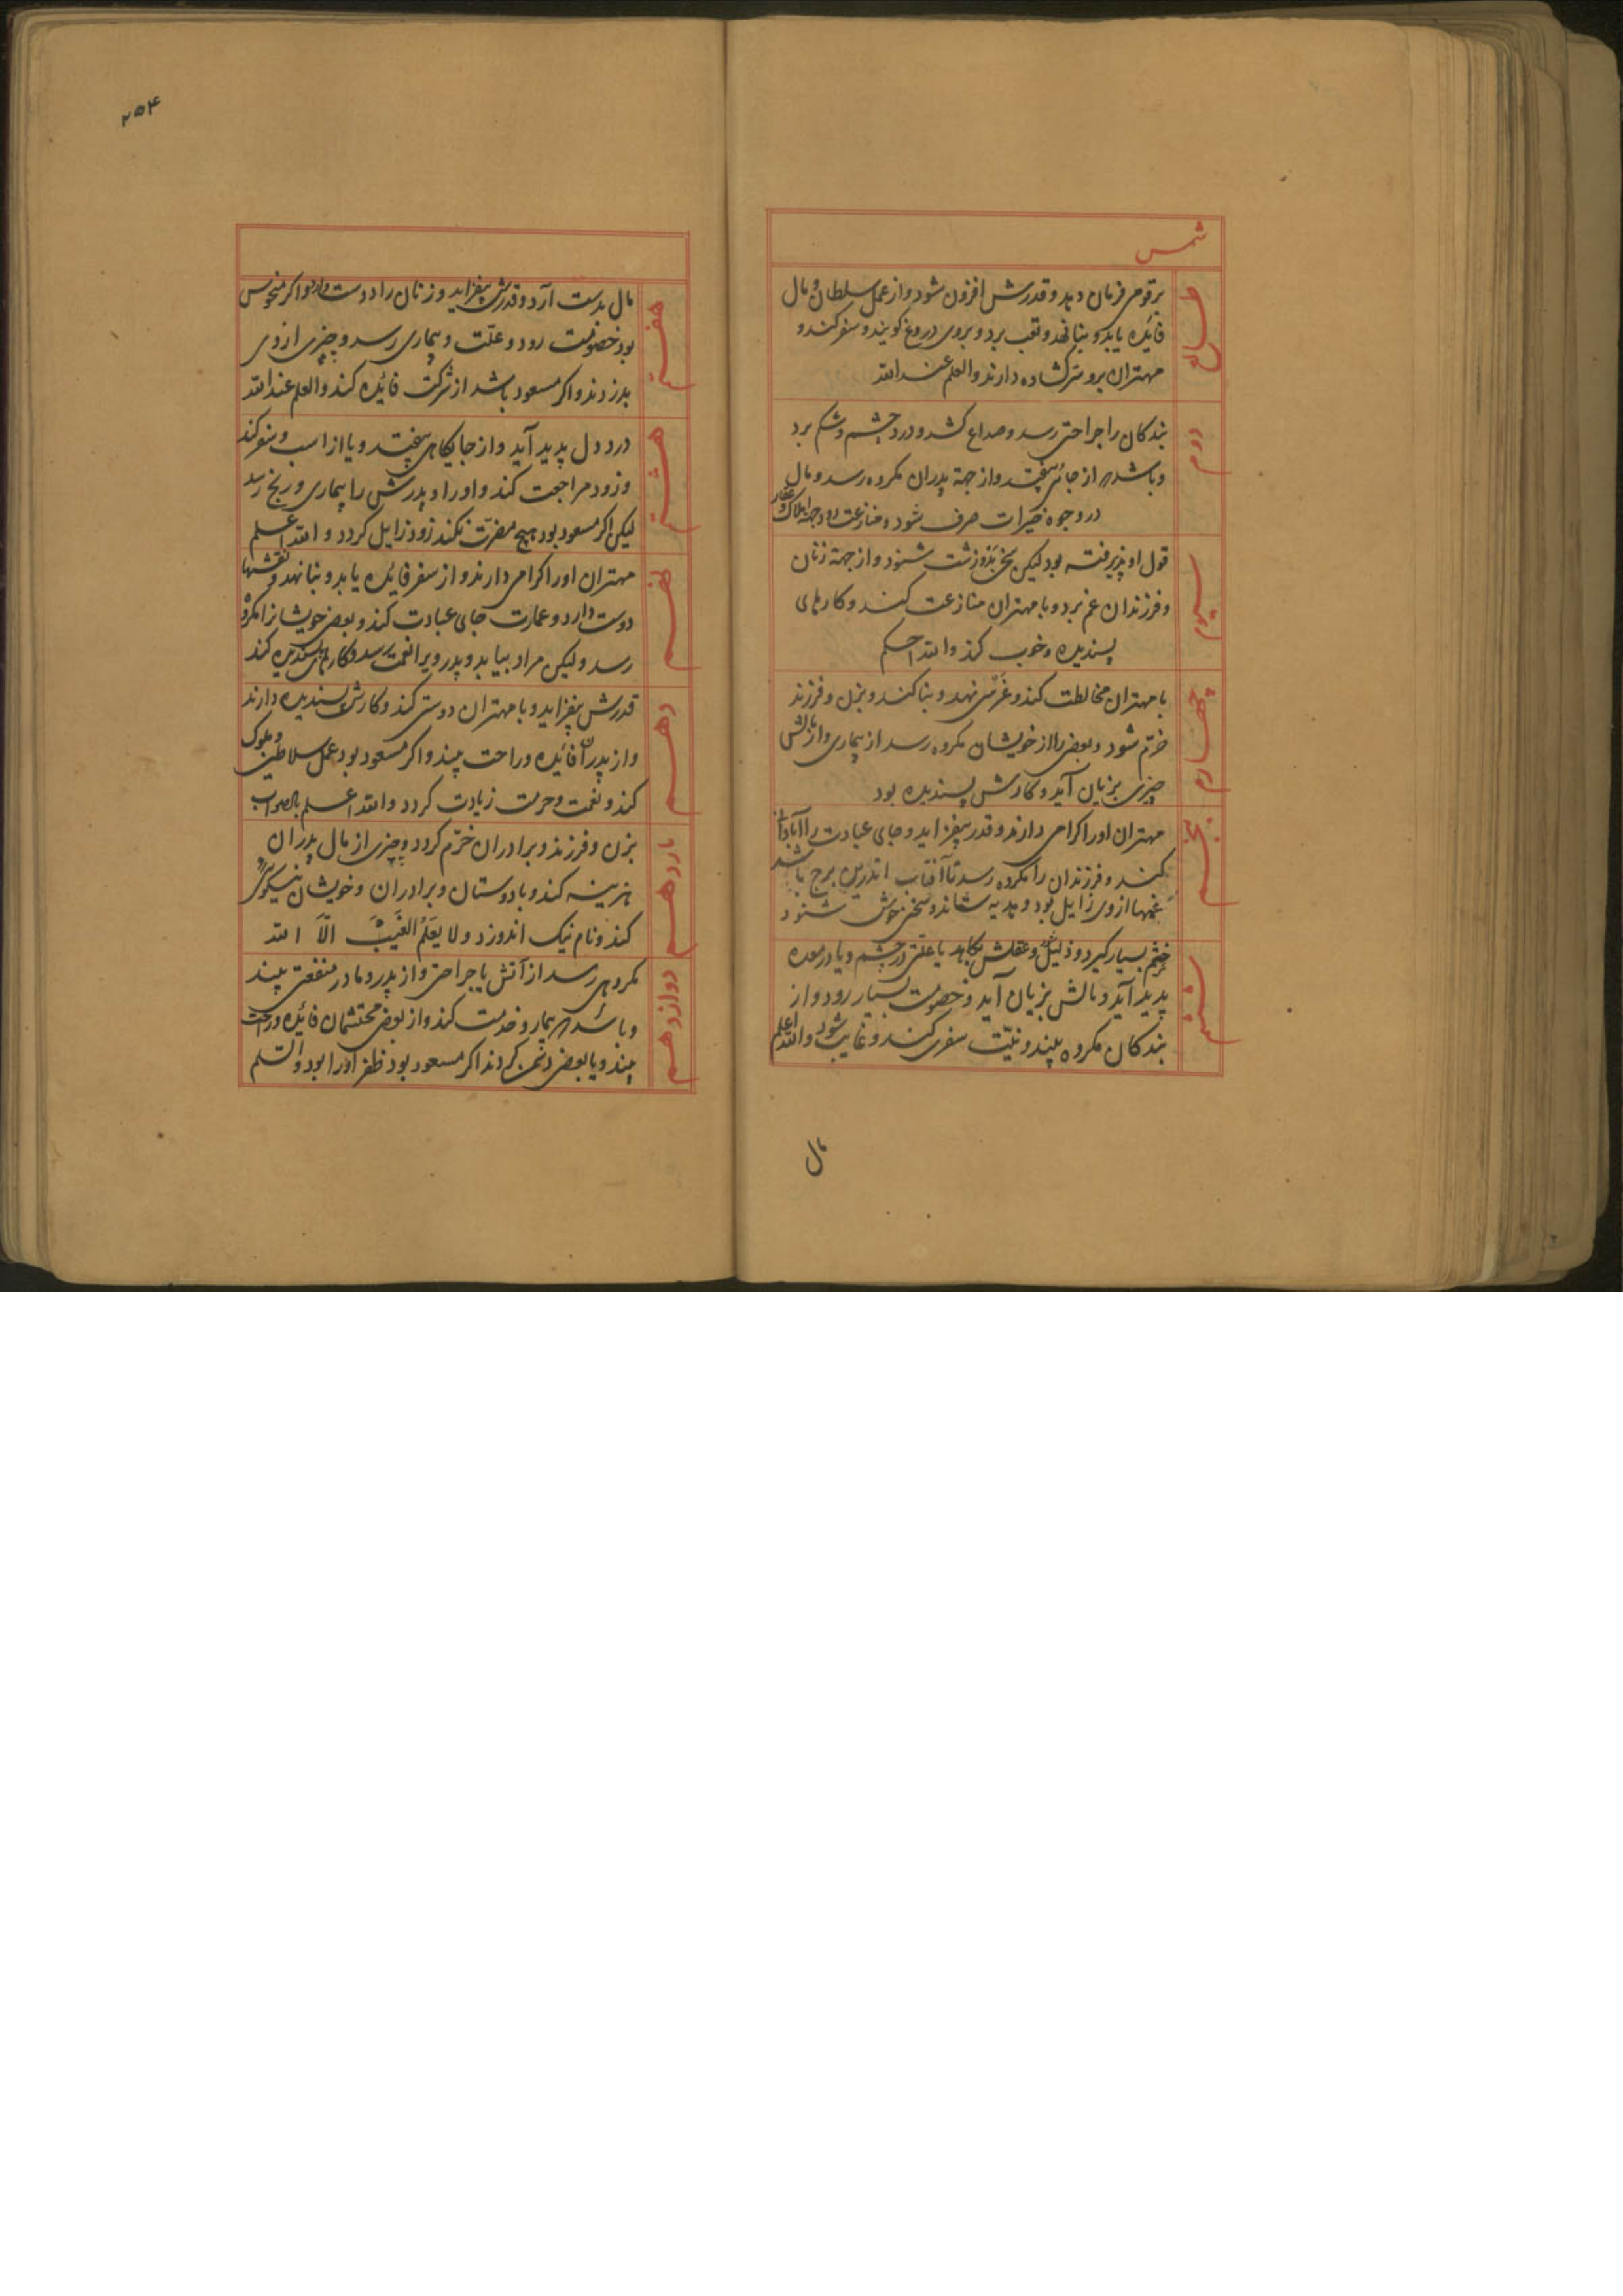 شمس
طالع
بر قومی فرمان دهد و قدرش افزون شود و از عمل سلطان و مال
فائده یابد و بنا نهد و تعب برد و بروی دروغ کویند و سفر کند و
مهتران برو سر کشاده دارند والعلم عند الله
دوم
بندکان را جراحتی رسد و صداع کشد و درد چشم و شکم برد
و باشد که از جائی بیفتد و از جهة پدران مکروه رسد و مال
در وجوه خیرات صرف شود و منازعت رود جهة املاک و عقار
سیوم
قول او پذیرفته بود لیکن سخن بد و زشت شنود و از جهة زنان
و فرزندان غم برد و با مهتران منازعت کند و کارهای
پسندیده و خوب کند والله احکم
چهارم
با مهتران مخالطت کند و غرس نهد و بنا کند و بزن و فرزند
خرم شود و بعضی را از خویشان مکروه رسد از بیماری و از مالش
چیزی بزیان آید و کارش پسندیده بود
پنجم
مهتران او را کرامی دارند و قدر بیفزاید و جای عبادت را آبادان
کند و فرزندان را مکروه رسد تا آفتاب اندرین برج باشد
غمها از وی زایل بود و هدیه ستاند و سخن خوش شنود
ششم
خشم بسیار کیرد و ذلیل و عقلش بکاهد یا علتی در چشم و یا در معده
پدید آید و مالش بزیان آید و خصومت بسیار رود و از
بندکان مکروه بیند و نیّت سفری کند و غایب شود والله اعلم
مال
۲۵۴
هفتم
مال بدست آرد و قدرش بیفزاید و زنان را دوست دارد و اکر منحوس
بود خصومت رود و علّت و بیماری رسد و چیزی از وی
بدزدند و اکر مسعود باشد از شرکت فائده کند والعلم عند الله
هشتم
درد دل پدید آید و از جایکاهی بیفتد و یا از اسب و سفر کند
و زود مراجعت کند و او را و پدرش را بیماری و رنج رسد
لیکن اکر مسعود بود هیچ مضرّت نکند زود زایل کردد والله اعلم
نهم
مهتران او را کرامی دارند و از سفر فائده یابد و بنا نهد و نقشها
دوست دارد و عمارت جای عبادت کند و بعضی خویشانرا مکروه
رسد و لیکن مراد بیابد و پدر ویرا نعمت رسد و کارهای پسندیده کند
دهم
قدرش بیفزاید و با مهتران دوستی کند و کارش پسندیده دارند
و از پدران فائده و راحت بیند و اکر مسعود بود عمل سلاطین و ملوک
کند و نعمت و حرمت زیادت کردد والله اعلم بالصواب
یازدهم
بزن و فرزند و برادران خرّم کردد و چیزی از مال پدران
هزینه کند و با دوستان و برادران و خویشان نیکویی
کند و نام نیک اندوزد و لا یَعلَمُ الغَیبَ الّا الله
دوازدهم
مکروهی رسد از آتش یا جراحتی و از پدر و مادر منفعتی بیند
و باشد که بیمار و خدمت کند و از بعضی محتشمان فائده و راحت
بیند و یا بعضی دشمن کردند اکر مسعود بود ظفر او را بود والسّلم